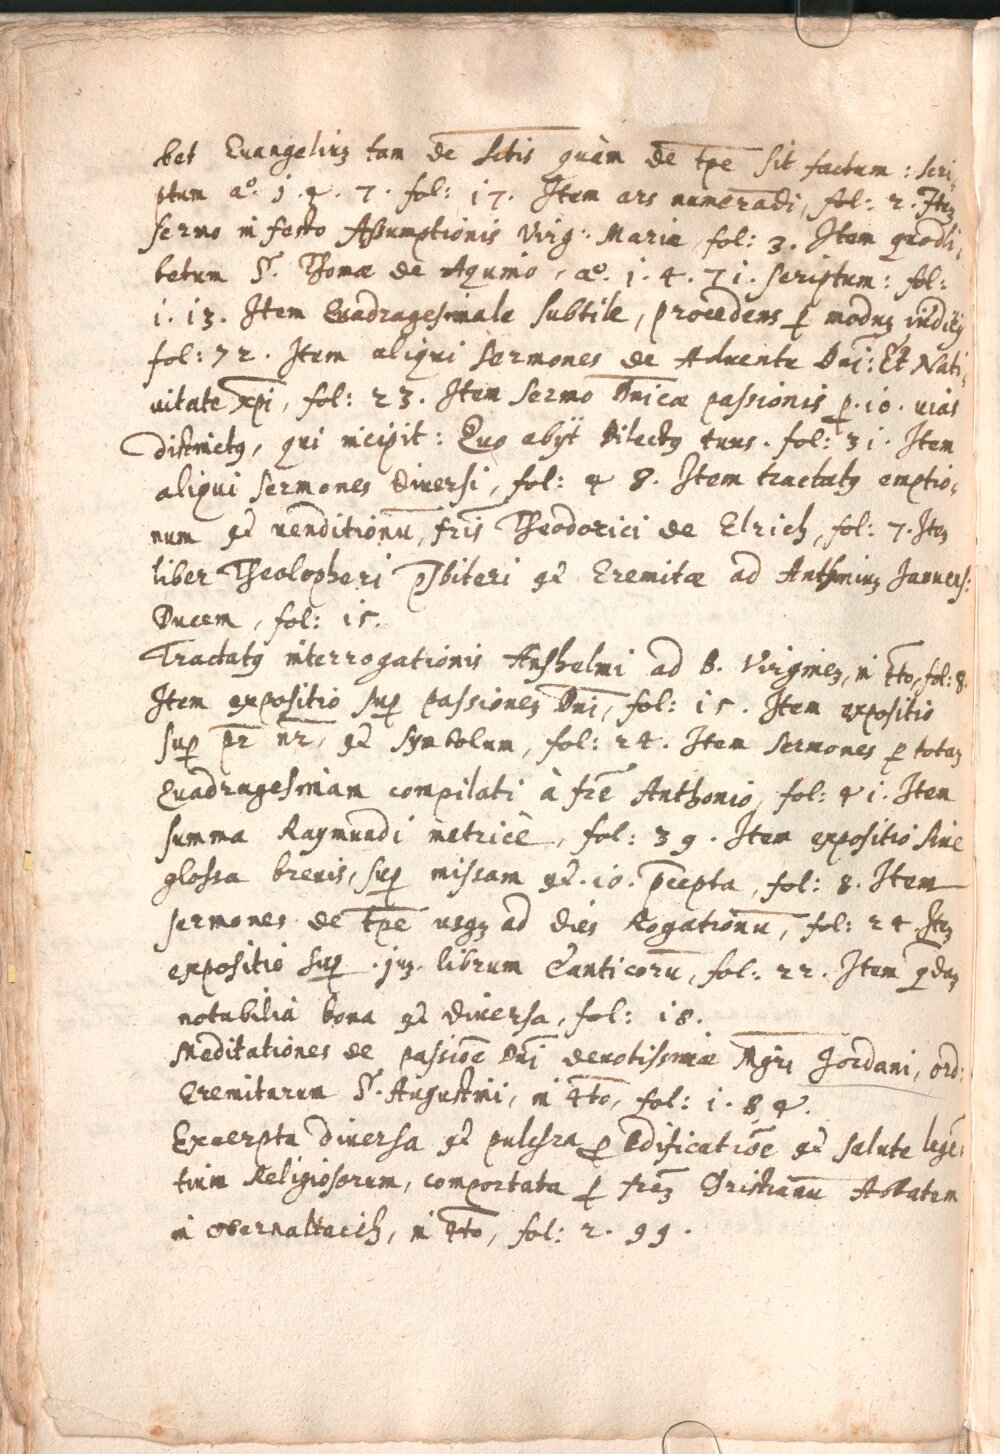 bet Euangeliuȝ tam de Sctis quàm de tpe sit factum: scri-
ptum aº. 1. 4. 7. fol: 17. Item ars numeradi, fol: 2. Iteȝ
sermo in festo Assumptionis Virg: Mariæ, fol: 3. Item quodli-
betum S. Thomæ de Aquino, aº. 1. 4. 71. scriptum: fol:
1. 13. Item Quadragesimale subtile, procedens ꝑ moduȝ iudicij
fol: 72. Item aliqui sermones de Aduentu Dni: Et Nati-
uitate xpi, fol: 23. Item sermo Dnicæ passionis ꝑ. 10. uias
distinctꝰ, qui incipit: Quo abijt dilectꝰ tuus. fol: 31. Item
aliqui sermones diuersi, fol: 48. Item tractatꝰ emptio-
num et uenditionū, fris Theodorici de Elrich, fol: 7. Iteȝ
liber Theolopheri Psbiteri et Eremitæ ad Anthoniuȝ Januens:
Ducem, fol: 15.
Tractatꝰ interrogationis Anshelmi ad B. Virgineȝ, in 4to, fol: 8.
Item expositio sup passioneȝ Dni, fol: 15. Item expositio
sup pr nr, et symbolum, fol: 24. Item sermones ꝑ totaȝ
Quadragesimam compilati à fre Anthonio, fol: 41. Item
summa Raymundi metricè, fol: 39. Item expositio siue
glossa breuis, sup missam et. 10. pcepta, fol: 8. Item
sermones de tpe usqȝ ad dies Rogationū, fol: 24 Iteȝ
expositio sup .juȝ. librum Canticorū, fol: 22. Item qdaȝ
notabilia bona et diuersa, fol: 18.
Meditationes de passiōe Dni deuotissimæ Mgri Jordani, ord:
Eremitarum S. Augustini, in 4to, fol: 1. 84.
Excerpta diuersa et pulchra ꝓ ædificatiōe et salute legē-
tium Religiosorum, comportata ꝑ freȝ Christianū Abbatem
in Obernaltaich, in 4to, fol: 2. 99.